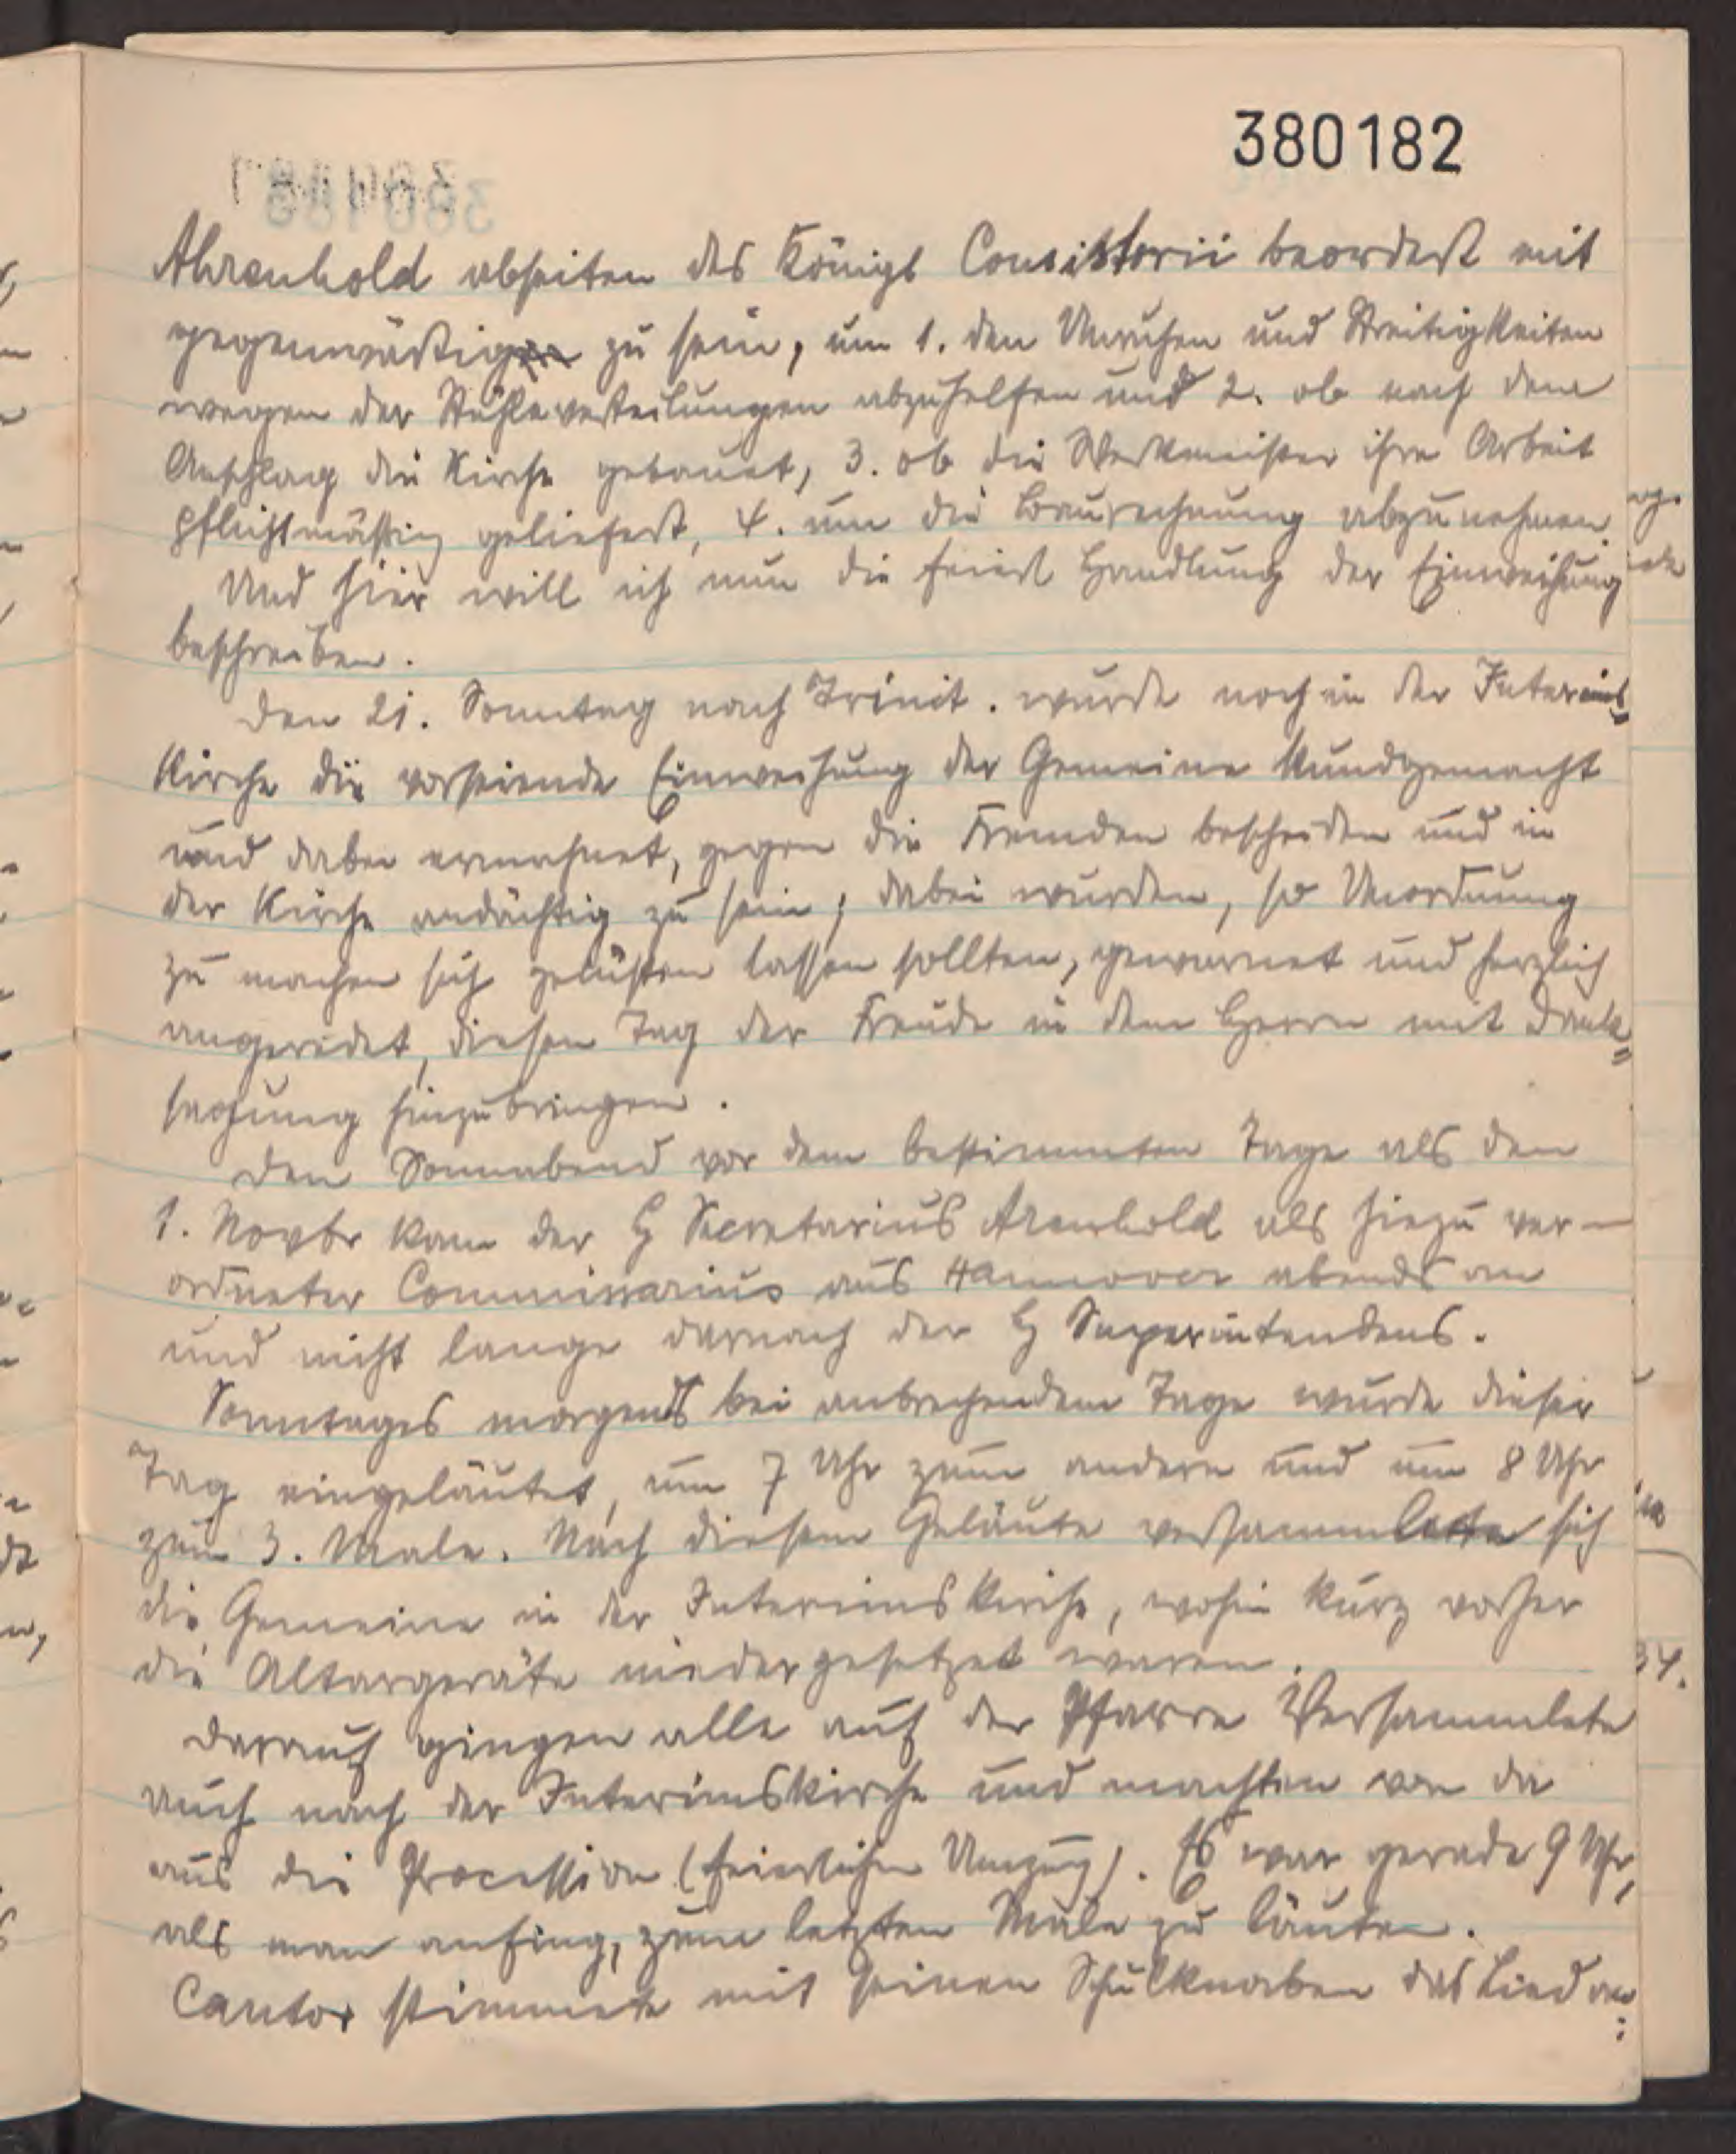 380182
Ahrenhold abseiten des Königl Consistorii beordert mit
gegenwärtig zu sein, um 1. den Unruhen und Streitigkeiten
wegen der Stühleverteilungen abzuhelfen und 2. ob nach dem
Anschlag die Kirche gebauet, 3. ob die Werkmeister ihre Arbeit
pflichtmäßig geliefert, 4. um die Baurechnung abzunehmen.
Und hier will ich nun die feierl Handlung der Einweihung
beschreiben.
Den 21. Sonntag nach Trinit. wurde noch in der Interims=
Kirche die vorseiende Einweihung der Gemeine kundgemacht
und dabei ermahnet, gegen die Fremden bescheiden und in
der Kirche andächtig zu sein; dabei wurden, so Unordnung
zu machen sich gelüsten lassen sollten, gewarnet und herzlich
angeredet, diesen Tag der Freude in dem Herrn mit Dank=
sagung hinzubringen.
Den Sonnabend vor dem bestimmten Tage als den
1. Novbr kam der H Secretarius Arenhold als hiezu ver-
ordneter Commissarius aus Hannover abends an
und nicht lange darnach der H Superintendens.
Sonntages morgens bei anbrechendem Tage wurde dieser
Tag eingeläutet, um 7 Uhr zum andern und um 8 Uhr
zum 3. Male. Nach diesem Geläute versammlete sich
die Gemeine in der Interimskirche, wohin kurz vorher
die Altargeräte niedergesetzet waren.
Darauf gingen alle auf der Pfarre Versammlete
auch nach der Interimskirche und machten von da
aus die Procession (feierlichen Umzug). Es war gerade 9 Uhr,
als man anfing, zum letzten Male zu läuten.
Cantor stimmete mit seinen Schulknaben das Lied an: